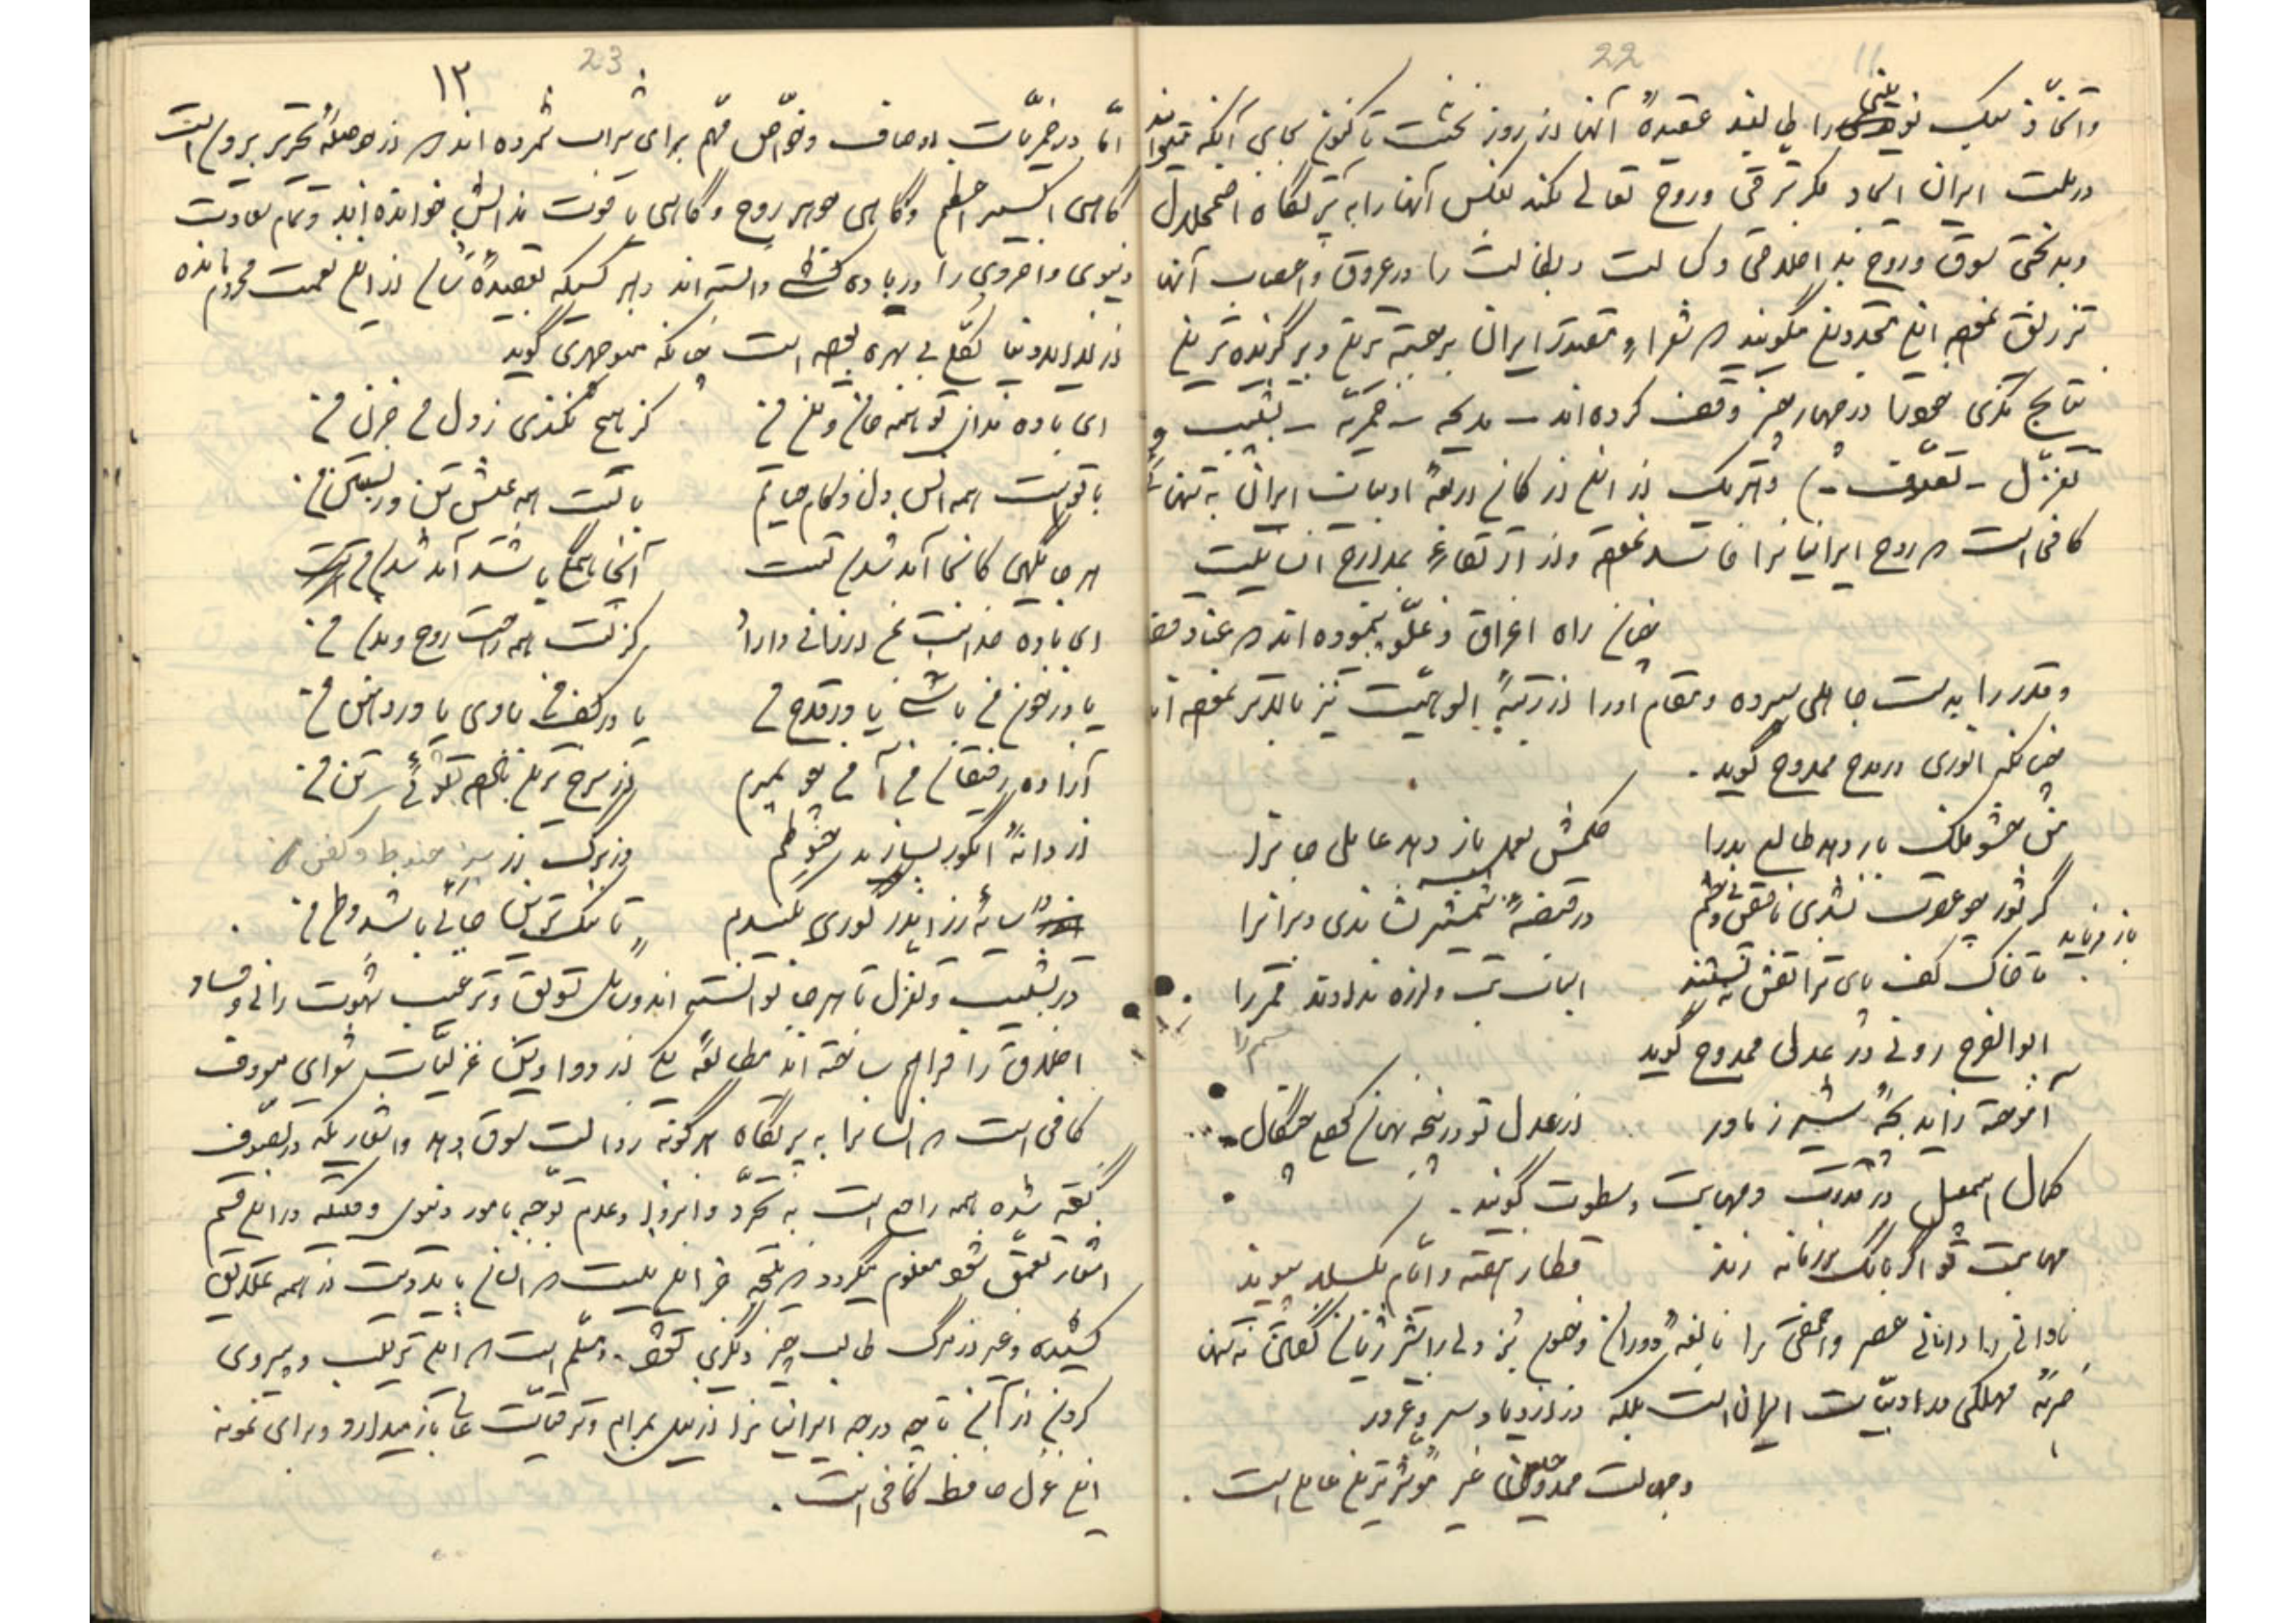 22
11
واتخاذ یک نویسی را طی لقید عقیدهٔ آنها از روز نخست تا کنون بجای آنکه بتوانند
در ملت ایران ایجاد فکر ترقی و روح تعالی بکند بعکس آنها را به پرتگاه اضمحلال
و بدبختی سوق و روح بد اخلاقی و کسالت و بطالت را در عروق و اعصاب آنها
تزریق نموده این متجددین میگویند که شعرا و متقدم ایران برجسته ترین و برگزیده ترین
نتایج فکری خود را در چهار چیز وقف کرده اند - مدیحه - خمریه - تشبیب و
تغزل - تصوف -) و هر یک از این ارکان اربعهٔ ادبیات ایران به تنهائی
کافی است که روح ایرانیانرا فاسد نموده و از ارتقاء بمدارج انسانیت
چنان راه اغراق و غلو پیموده اند که عنان قضا
و قدر را بدست جاهلی سپرده و مقام او را از رتبهٔ الوهیت نیز بالاتر نموده اند
چنانکه انوری در مدح ممدوح گوید -
نقش حشو ملک باز دهد طالع بد را
حکمش بعمل باز دهد عامل جانرا
گر ثور چو عقرب نشدی ناقص و بی چشم
در قبضهٔ شمشیر نشاندی دبرانرا
باز فرماید
تا خاک کف پای ترا نقش نبستند
اسباب تب و لرزه ندادند قسم را
قسم را
ابوالفرج رونی در عدل ممدوح گوید
آموخته زاید بچهٔ شیر ز مادر
از عدل تو در پنجه نهان کرده چنگال -
کمال اسمعیل در قدرت و مهابت و سطوت گوید -
مهابت تو اگر بانگ بر زمانه زند
قطار هفته و ایام بگسلد پیوند
نادانی را دانای عصر و احمقی را نابغهٔ دوران و خصم بز دلی را شیر ژیان گفتن نه تنها
ضربهٔ مهلکی بر ادبیات ایران است بلکه در ازدیاد سر و غرور
و جهالت ممدوحین غیر مؤثرترین عامل است .
23
۱۲
امّا در خمریّات اوصاف و خواصّ مهم برای شراب شمرده اند که از حوصلهٔ تحریر بیرون است
گاهی اکسیر اعظم و گاهی جوهر روح و گاهی یاقوت مذابش خوانده اند و تمام سعادت
دنیوی و اخروی را در باده کشی دانسته اند و هر کسیکه بعقیدهٔ شان از این نعمت محروم مانده
از لذایذ دنیا بکلی بی بهره بوده است چنانکه منوچهری گوید
ای باده فدای تو همه جان و تن من
کز بیخ بکندی ز دل من حزن من
با تست همه انس دل و کام حیاتم
با تست همه عیش تن و زیستن من
هر جایگهی کانجا آمد شدن تست
آنجا همه گه باشد آمد شدن من
ای باده خدایت بمن ارزانی دارا
کز تست همه راحت روح و بدن من
یا در خم من باشی یا در قدح من
یا در کف من بادی یا در دهن من
آزاده رفیقان من آ من چو بمیرم
از سرخ ترین باده بشوئید تن من
از دانهٔ انگور بسازید حنوطم
وز برگ رز سبز حنوط و کفن من
در سایهٔ رز اندر گوری بکنیدم
تا نیک ترین جائی باشد وطن من .
در تشبیب و تغزل تا هر جا توانسته اند وسائل تشویق و ترغیب شهوت رانی و فساد
اخلاق را فراهم ساخته اند مطالعهٔ یکی از دواوین غزلیّات شعرای معروف
کافی است که انسانرا به پرتگاه هر گونه رذالت سوق دهد و اشعاریکه در تصوف
گفته شده همه راجع است به تجرّد و انزوا و عدم توجّه بامور دنیوی وقتیکه در این قسم
اشعار تعمق شود معلوم میگردد که نتیجه جز این نیست که انسان باید دست از همه علائق
کشیده و غیر از مرگ طالب چیز دیگری نشود - و مسلّم است که این ترتیب و پیروی
کردن از آن تا چه درجه ایرانیانرا از نیل بمرام و ترقیات عالی باز میدارد و برای نمونه
این غزل حافظ کافی است .